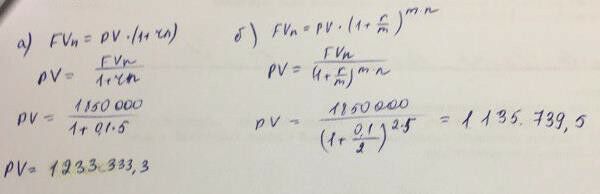 а) FVn = PV · (1 + rn)
PV = FVn / (1 + rn)
PV = 1850 000 / (1 + 0,1 · 5)
PV = 1233.333,3
б) FVn = PV · (1 + r/m)^m·n
PV = FVn / (1 + r/m)^m·n
PV = 1850000 / (1 + 0,1/2)^2·5 = 1 135.739,5